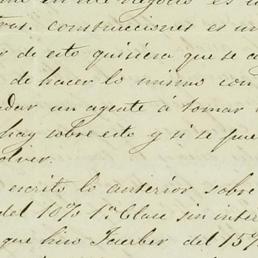 en este negocio es u
tras. construcciones es un
r de esto quisiera que se a
de hacer lo mismo con
ndar un agente a tomar
hay sobre esto y si se pue
olver.
escrito lo anterior sobre
del 10% 1a. Clase sin inter
que hizo Faerber del 15%